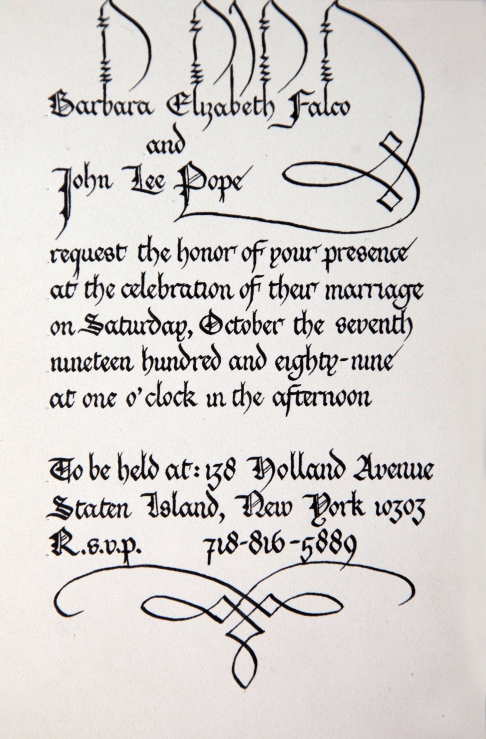 Barbara Elizabeth Falco
and
John Lee Pope
request the honor of your presence
at the celebration of their marriage
on Saturday, October the seventh
nineteen hundred and eighty-nine
at one o'clock in the afternoon
To be held at: 138 Holland Avenue
Staten Island, New York 10303
R.s.v.p. 718-816-5889